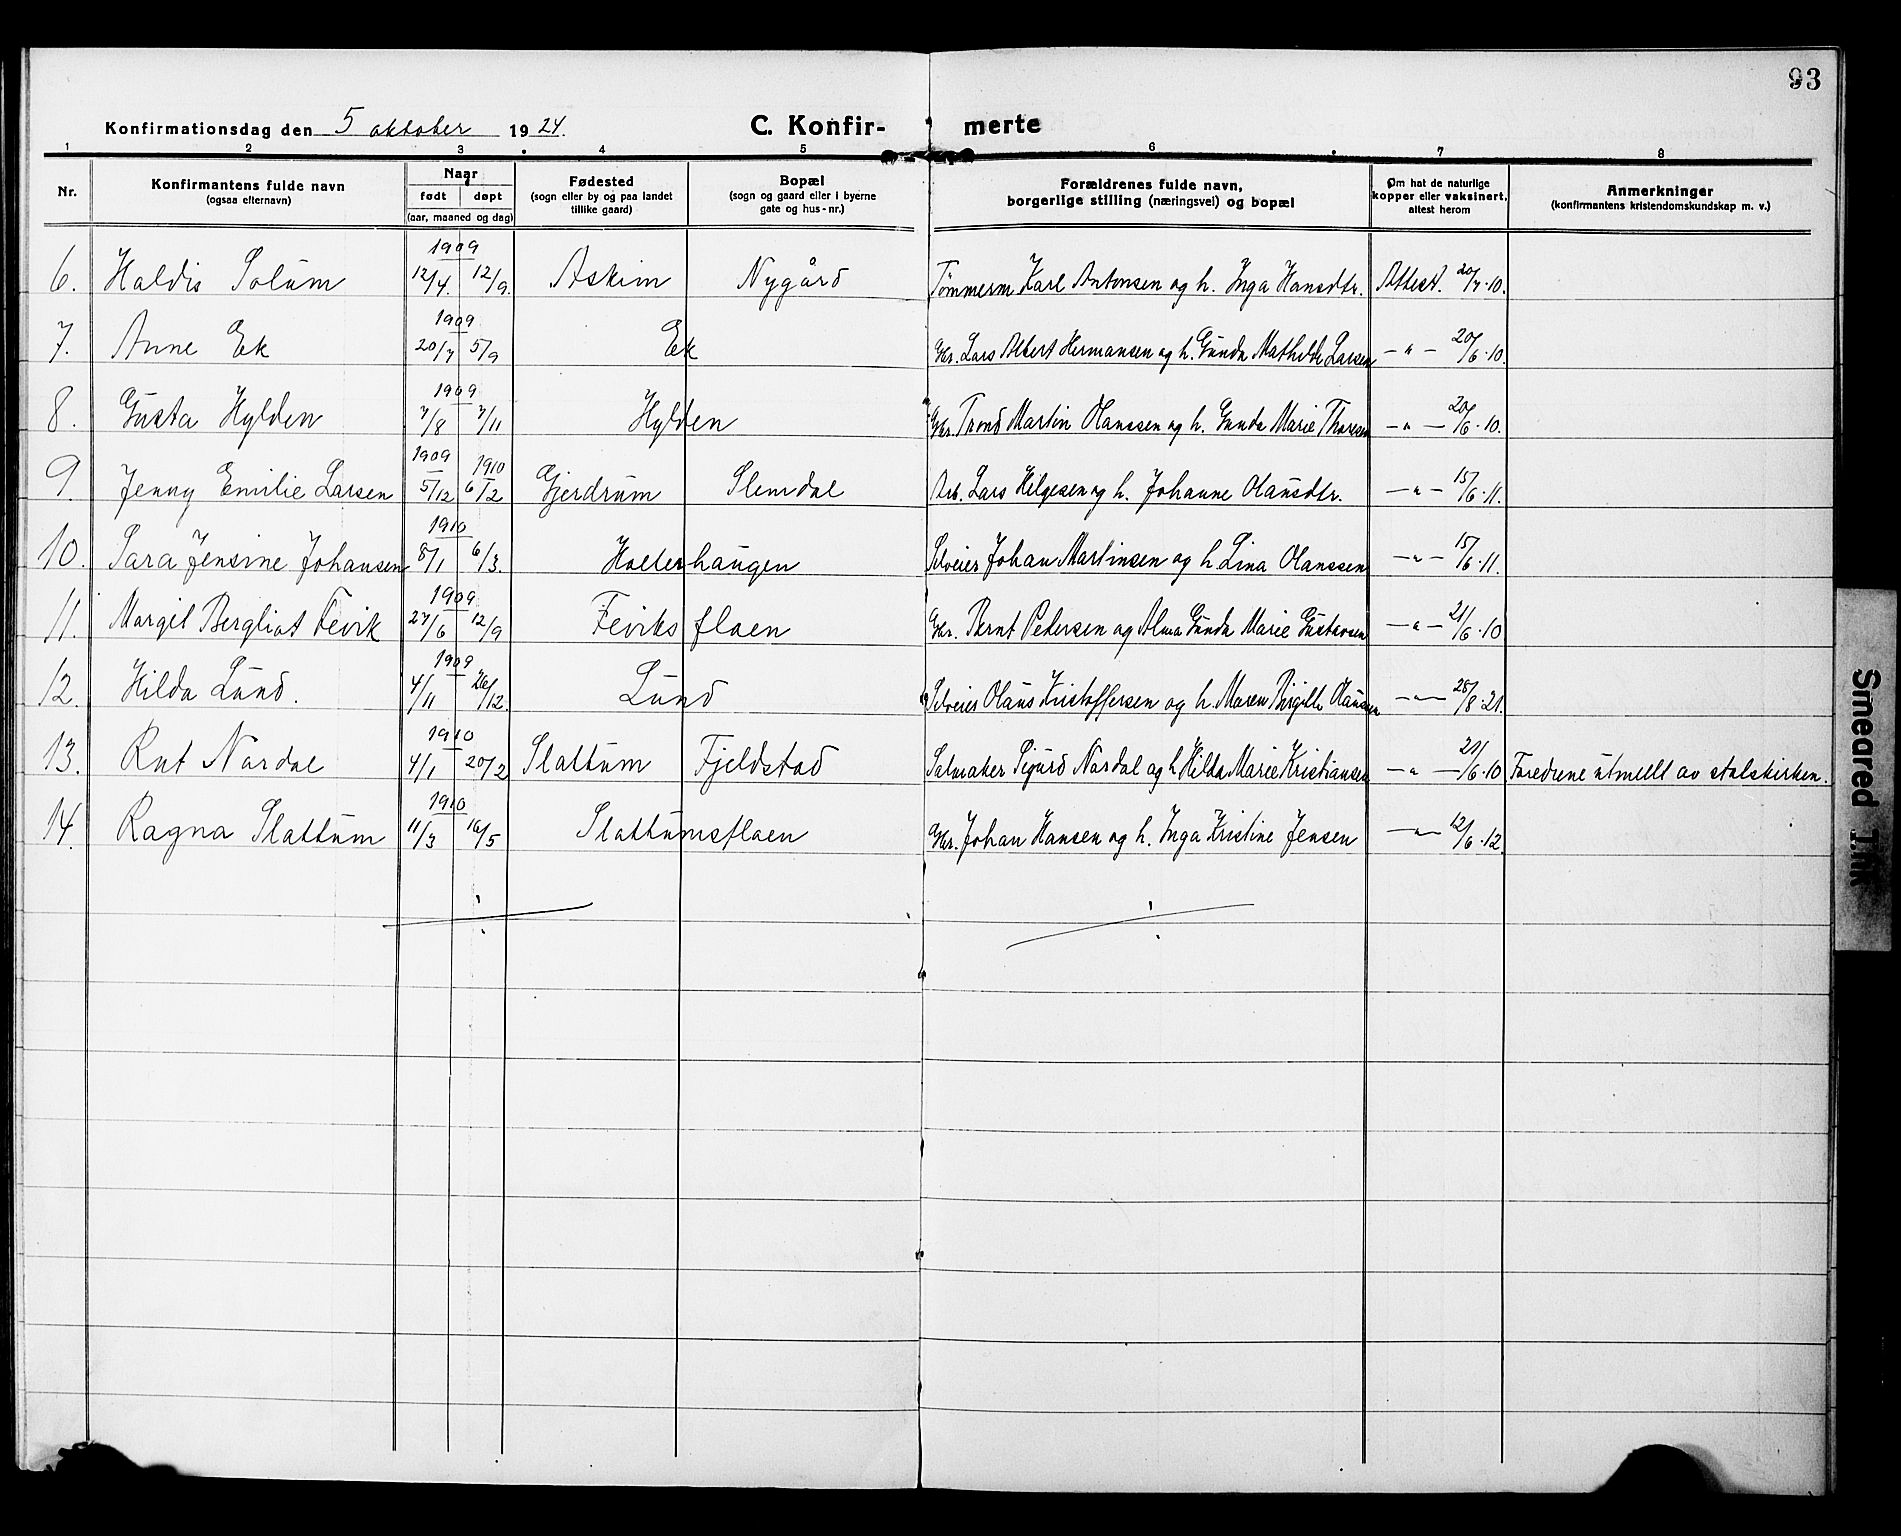 93
Konfirmationsdag den 5 oktober 1924. C. Konfir- merte
1 2 3 4 5 6 7 8
Nr. Konfirmantens fulde navn (ogsaa efternavn) Naar født døpt (aar, maaned og dag) Fødested (sogn eller by og paa landet tillike gaard) Bopæl (sogn og gaard eller i byerne gate og hus-nr.) Forældrenes fulde navn, borgerlige stilling (næringsvei) og bopæl Om hat de naturlige kopper eller vaksinert, attest herom Anmerkninger (konfirmantens kristendomskundskap m. v.)
1909
6. Haldis Solum 12/4. 12/9. Askim Nygård Tømmerm Karl Antonsen og h. Inga Hansdtr. Attest. 20/7.10.
1909
7. Anne Ek 20/7 5/9 Ek Gbr. Lars Albert Hermansen og h. Gunda Mathilde Larsen — " — 20/6.10.
1909
8. Gusta Hylden 7/8 7/11 Hylden Gbr. Trond Martin Olaussen og h. Gunda Marie Thoresen — " — 20/6.10.
1909 1910
9. Jenny Emilie Larsen 5/12 6/2 Gjerdrum Slemdal Arb. Lars Helgesen og h. Johanne Olausdtr. — " — 15/6.11.
1910
10. Sara Jensine Johansen 8/1 6/3. Holterhaugen Selveier Johan Martinsen og h. Lina Olaussen — " — 15/6.11.
1909
11. Margit Bergliot Fevik 27/6 12/9 Feviksflaen Gbr. Bernt Pedersen og Alma Gunda Marie Gustavsen — " — 21/6.10
1909
12. Hilda Lund. 4/11 26/12. Lund Selveier Olaus Kristoffersen og h. Maren Birgitte Olaussen — " — 28/8.21.
1910
13. Rut Nordal 4/1 20/2 Slattum Fjeldstad Salmaker Sigurd Nordal og h. Hilda Marie Kristiansen — " — 21/6.10 utmeldt av statskirken.
1910
14. Ragna Slattum 11/3 16/5 Slattumsflaen Gbr. Johan Hansen og h. Inga Kristine Jensen — " — 12/6.12.
Smeared Ink